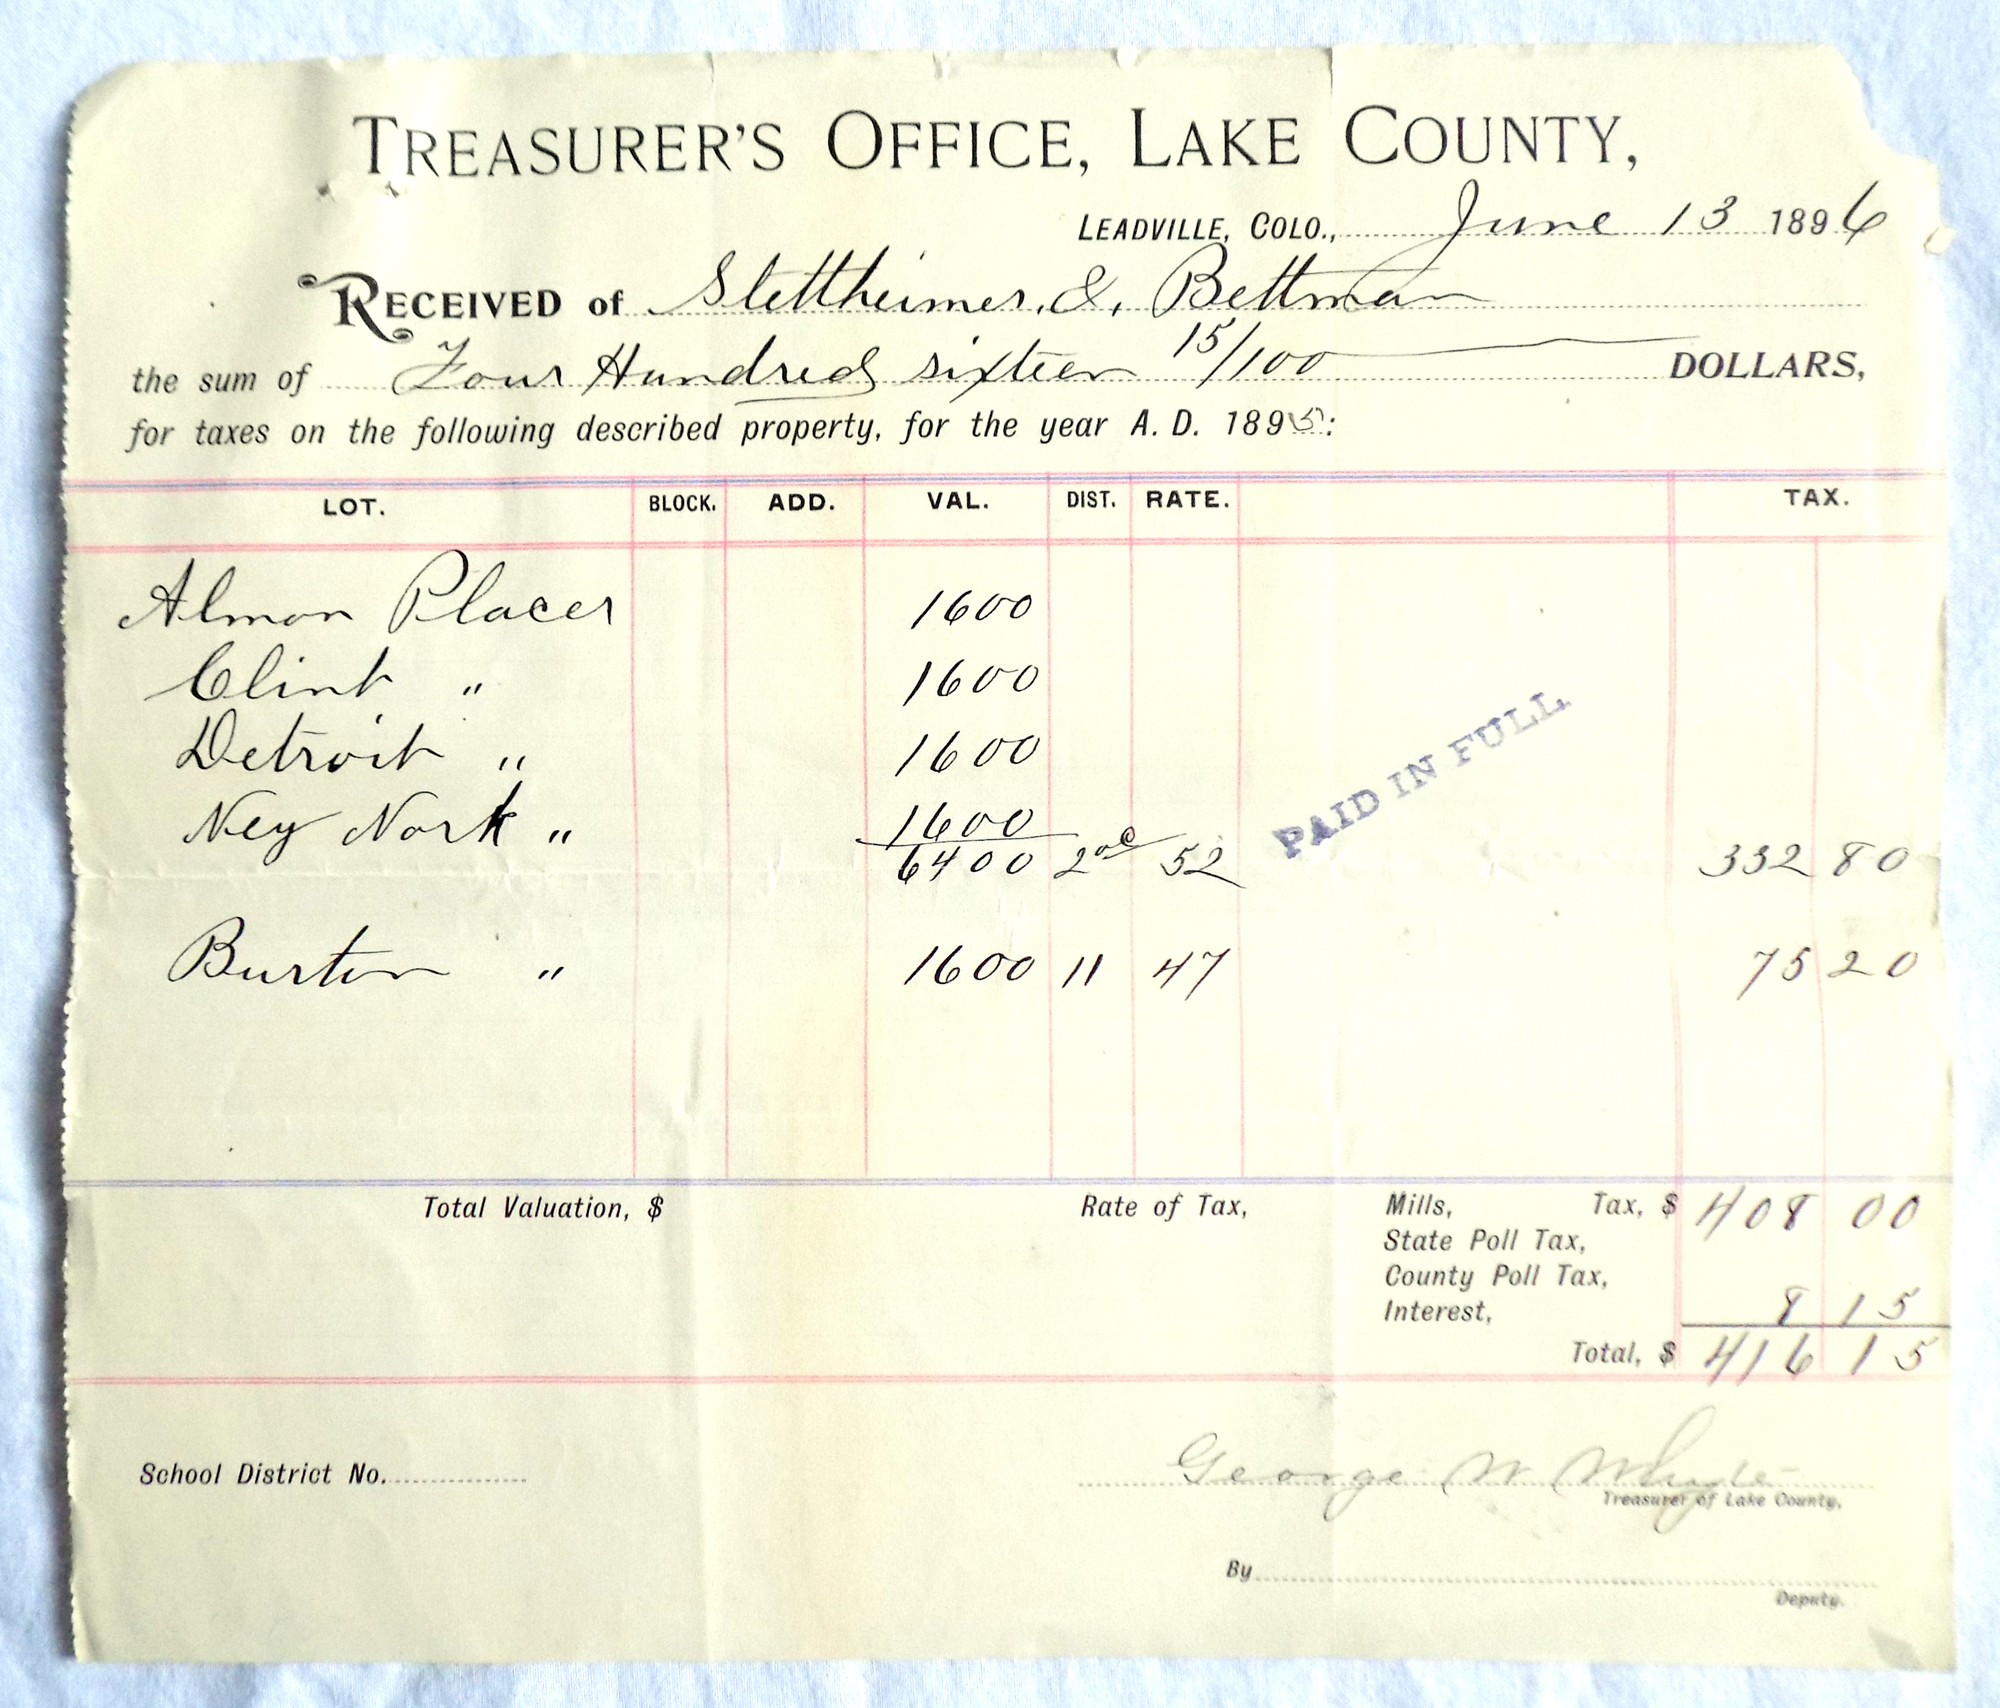 TREASURER'S OFFICE, LAKE COUNTY,
LEADVILLE, COLO., June 13 1896
RECEIVED of Stettheimer & Bettman
the sum of Four Hundred sixteen 15/100 DOLLARS,
for taxes on the following described property, for the year A. D. 1895:
LOT. BLOCK. ADD. VAL. DIST. RATE. TAX.
Almon Placer 1600
Clint " 1600
Detroit " 1600
PAID IN FULL.
Ney Nork " 1600
6400 2 52 332 80
Burton " 1600 11 47 75 20
Total Valuation, $ Rate of Tax, Mills, Tax, $ 408 00
State Poll Tax,
County Poll Tax,
Interest, 8 15
Total, $ 416 15
School District No. George W
Treasurer of Lake County.
By
Deputy.